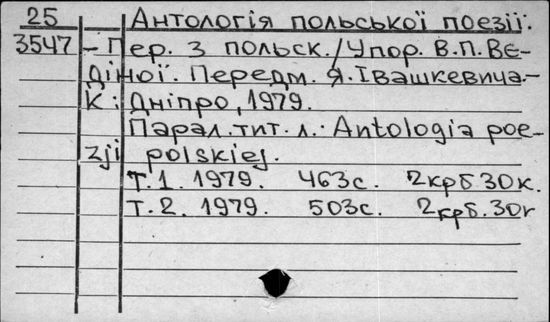 25 Антологія польської поезії:
3547 – Пер. з польск./Упор. В.П.Вє-
діної. Передм. Я.Івашкевича.–
К.: Дніпро, 1979.
Парал.тит.л.: Antologia poe-
zji polskiej.
Т.1. 1979. 463с. 2крб.30к.
Т.2. 1979. 503с. 2крб.30к